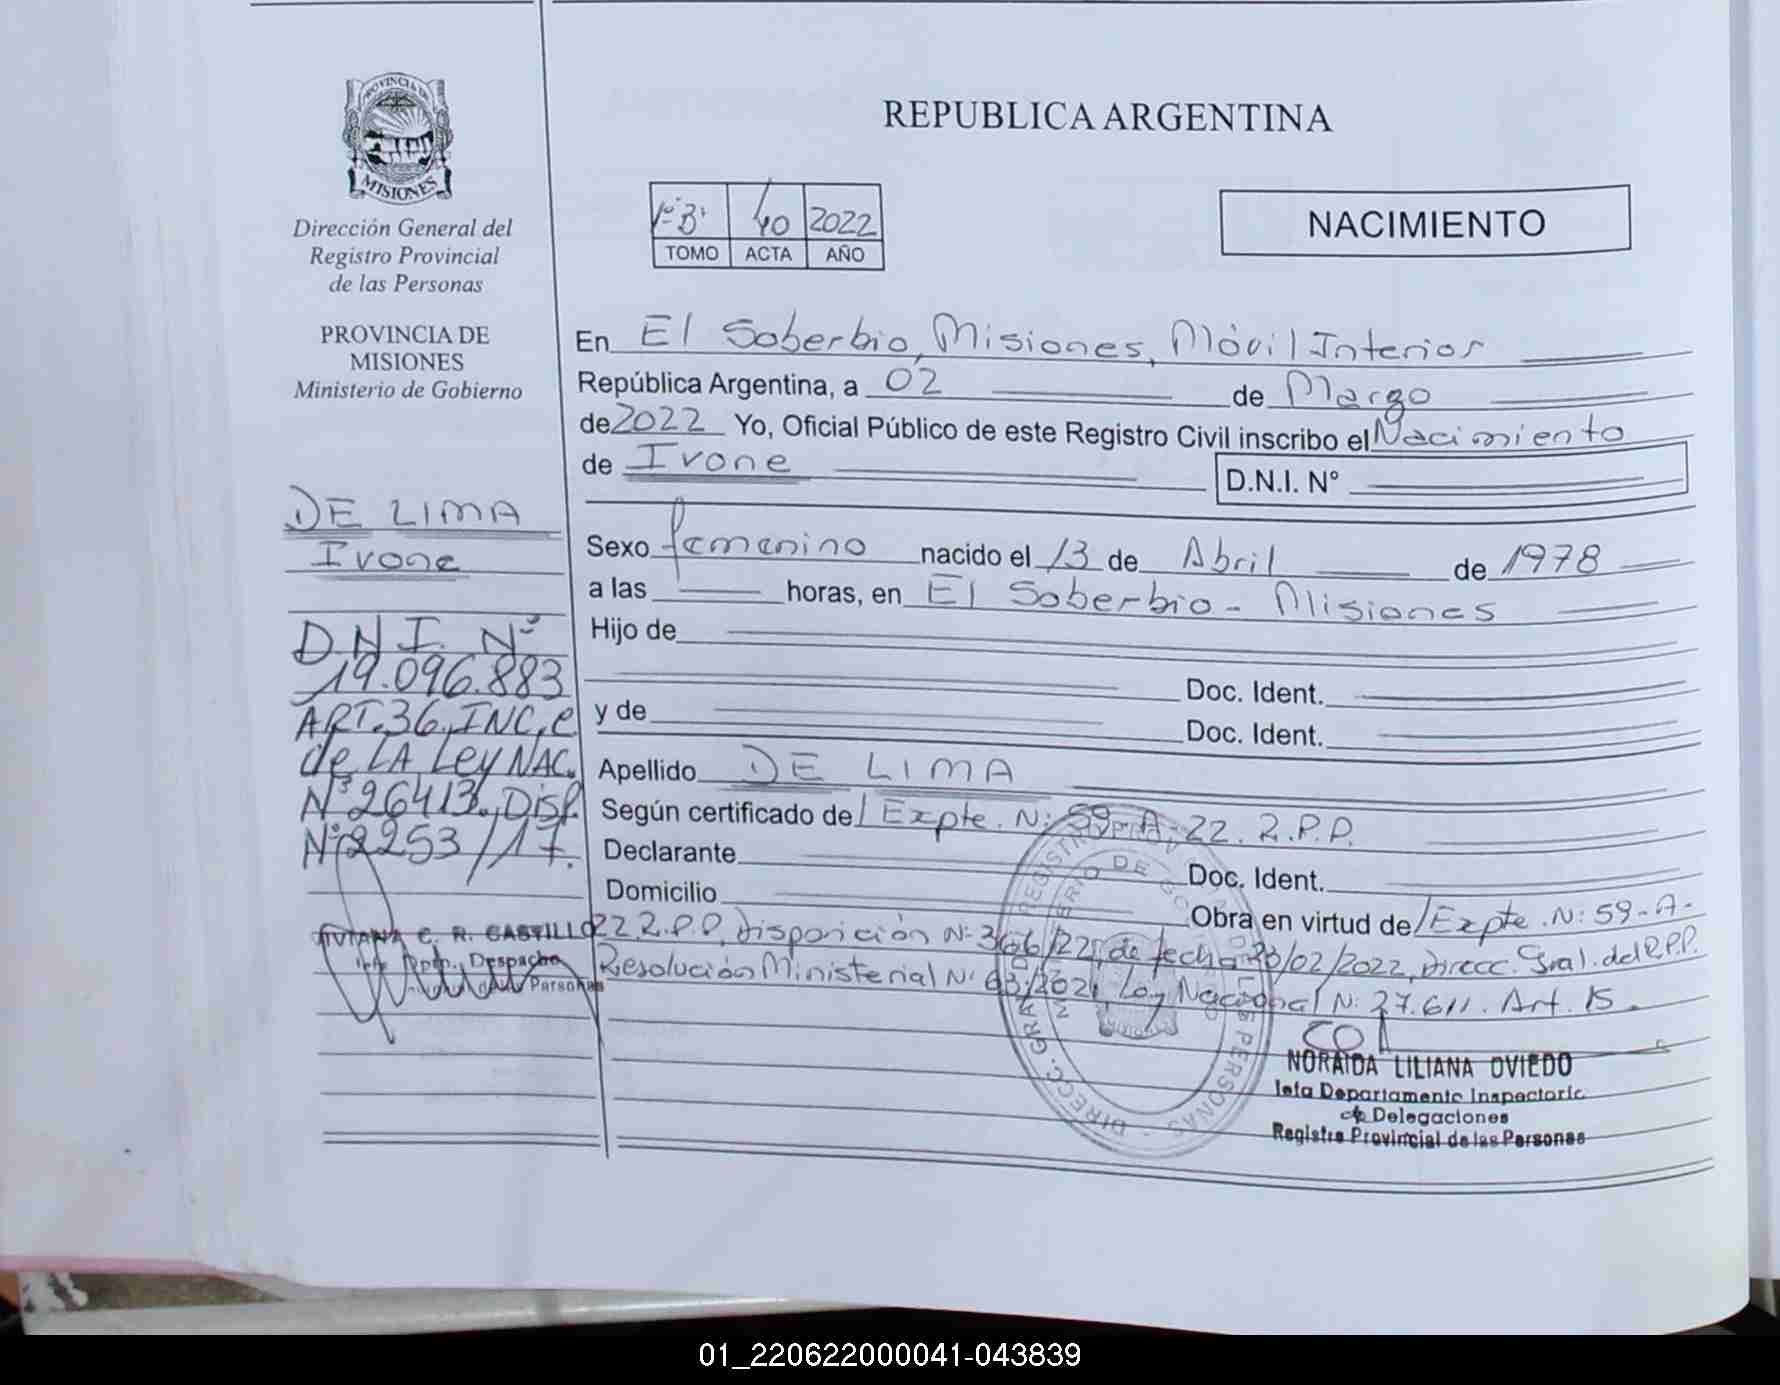 PROVINCIA DE
MISIONES
Dirección General del
Registro Provincial
de las Personas
PROVINCIA DE
MISIONES
Ministerio de Gobierno
DE LIMA
Ivone
D.N.I. Nº
19.096.883
ART. 36, INC, e
de LA Ley NAC.
Nº 26413., Disp.
Nº 2253/17.
VIVIANA C. R. CASTILLO
Dpto. Despacho
de las Personas
REPUBLICA ARGENTINA
1º "B" 40 2022
TOMO ACTA AÑO
NACIMIENTO
En El Soberbio, Misiones, Móvil Interior
República Argentina, a 02 de Marzo
de 2022 Yo, Oficial Público de este Registro Civil inscribo el Nacimiento
de Ivone D.N.I. Nº
Sexo femenino nacido el 13 de Abril de 1978
a las horas, en El Soberbio - Misiones
Hijo de
Doc. Ident.
y de Doc. Ident.
Apellido DE LIMA
Según certificado de Expte. Nº 59-A-22. R.P.P.
Declarante Doc. Ident.
Domicilio
Obra en virtud de Expte. Nº 59-A-
22 R.P.P. Disposición Nº 366/22, de fecha 23/02/2022, Direcc. Gral. del R.P.P.
Resolución Ministerial Nº 63/2021, Ley Nacional Nº 27.611. Art. 15.
NORAIDA LILIANA OVIEDO
Jefa Departamento Inspectoría
Delegaciones
Registro Provincial de las Personas
01_220622000041-043839